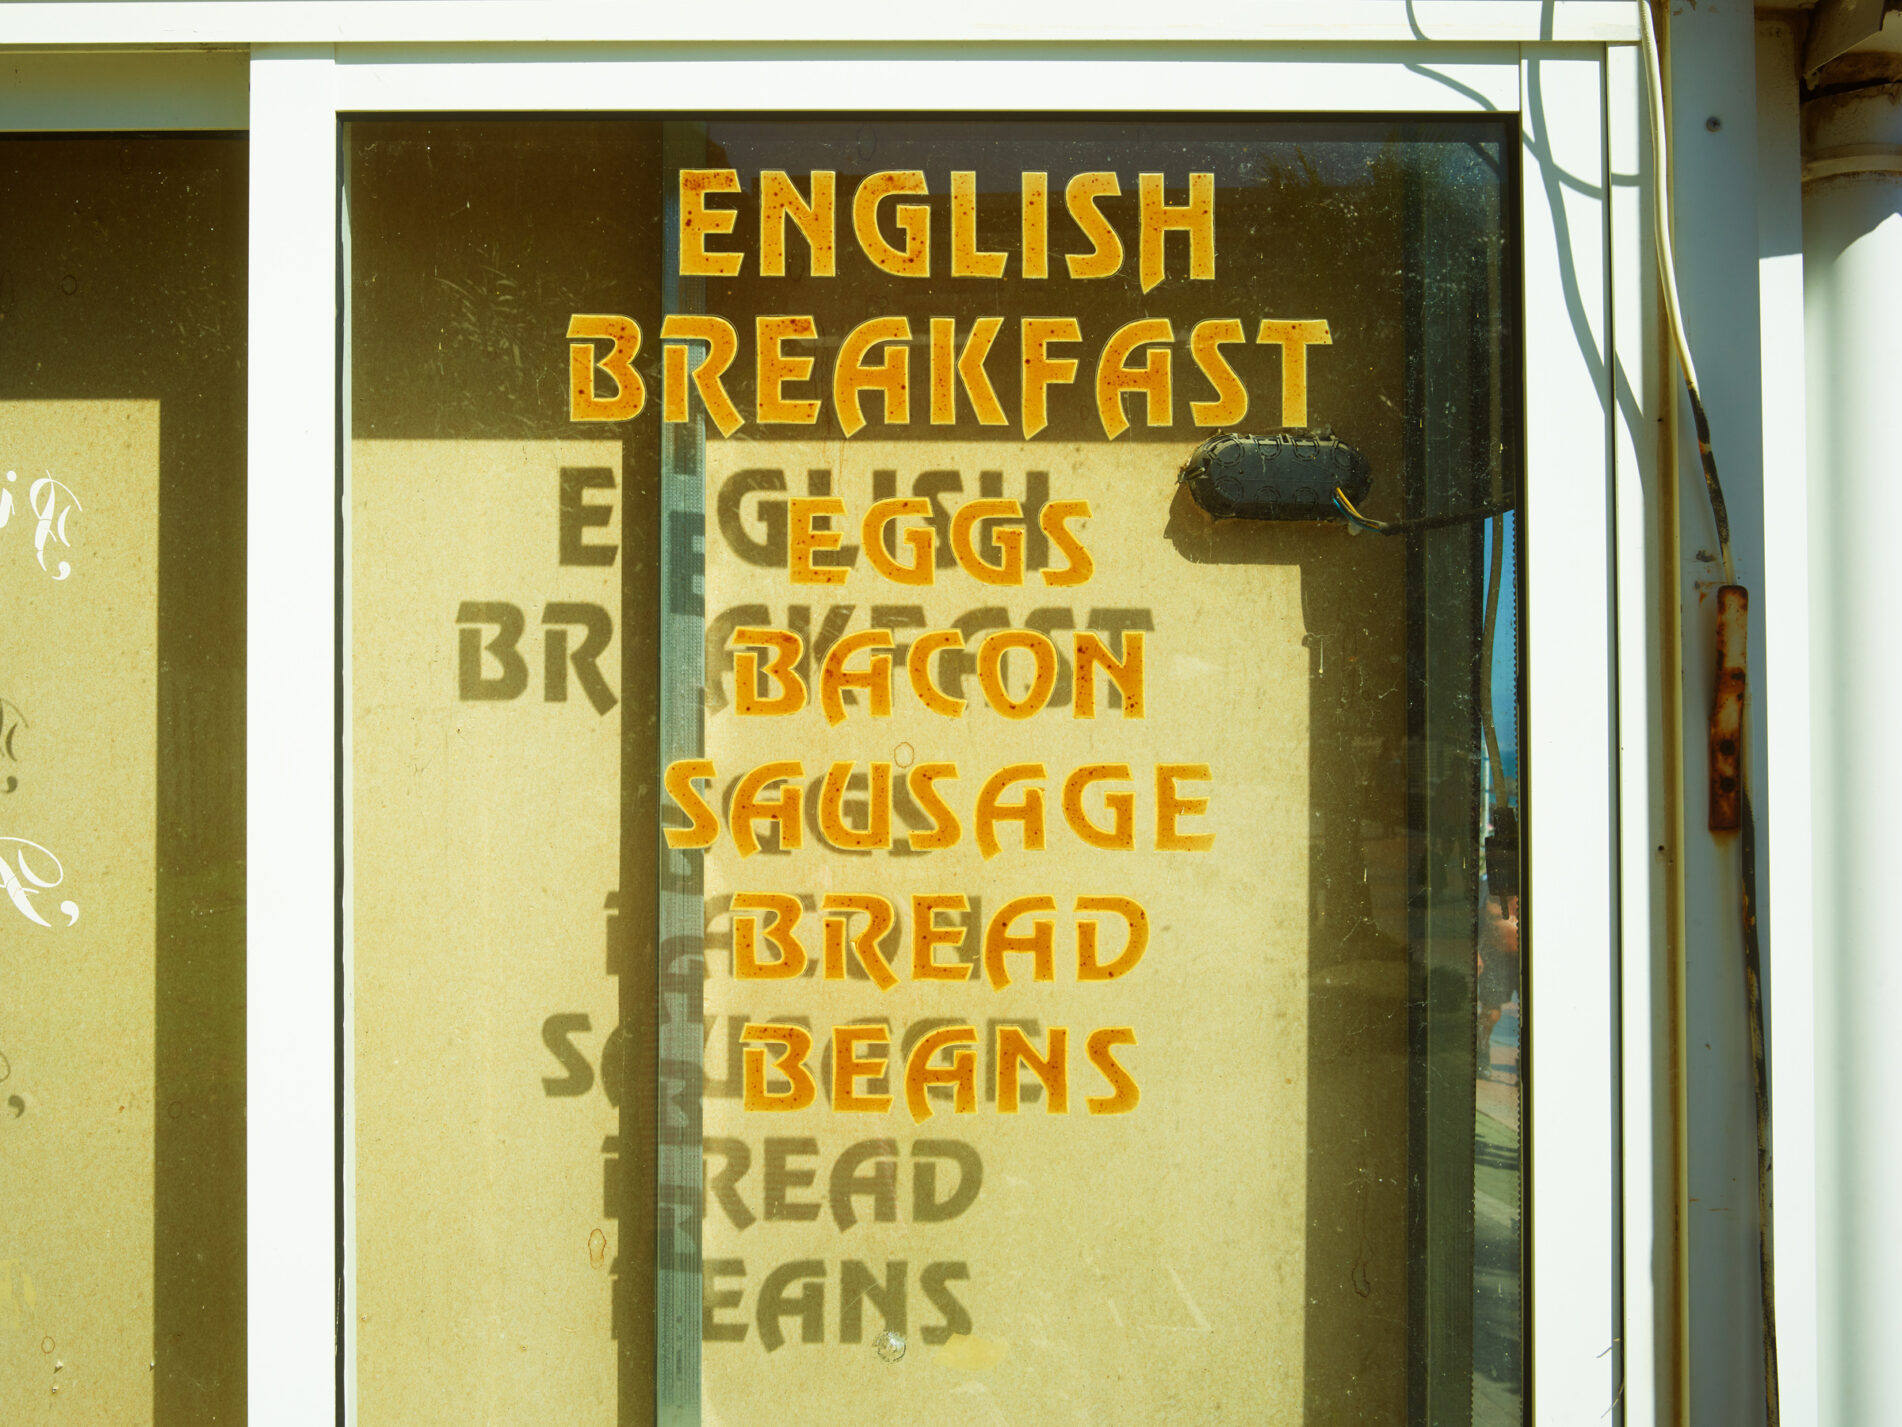 ENGLISH
BREAKFAST
EGGS
BACON
SAUSAGE
BREAD
BEANS